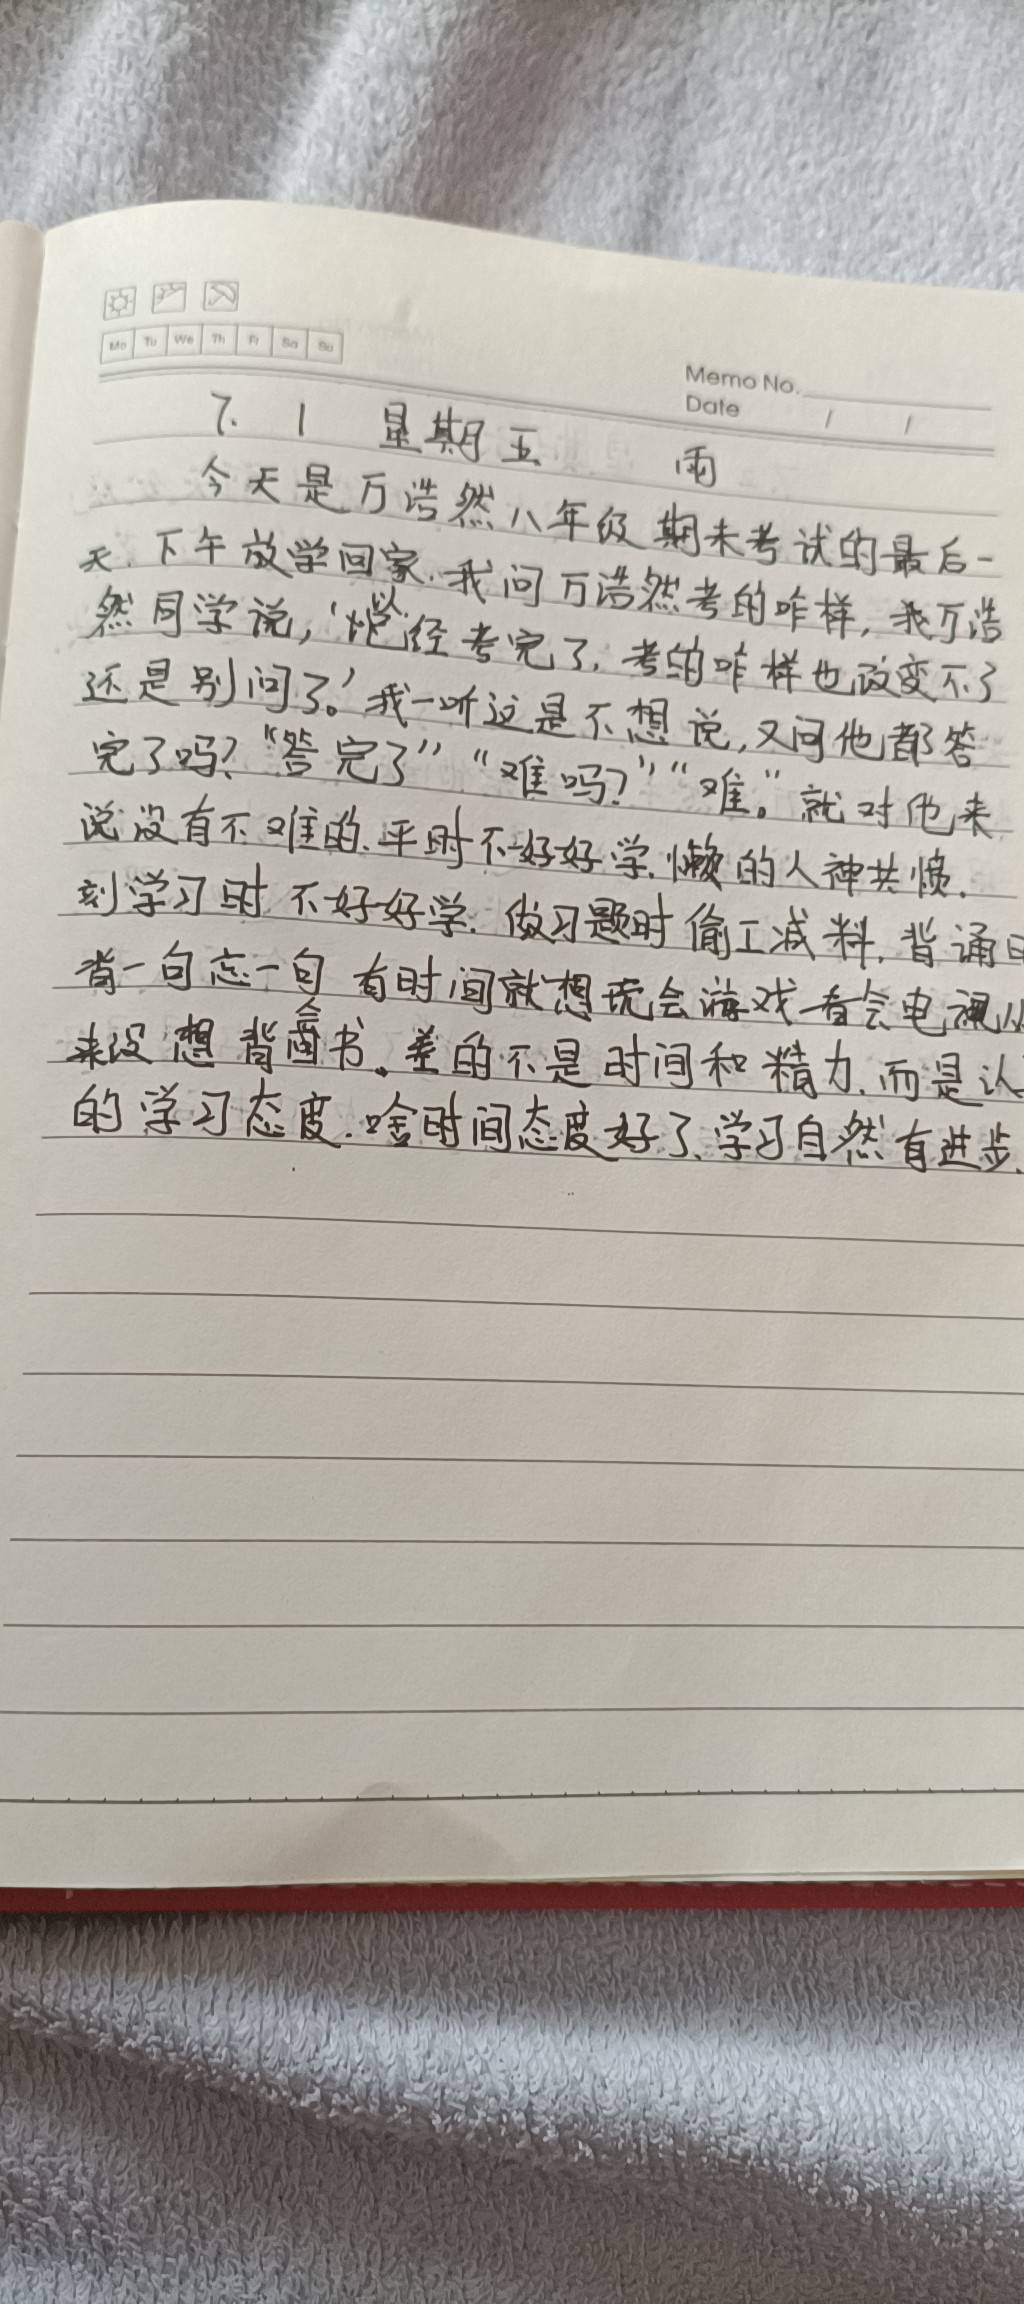 Mo Tu We Th Fr Sa Su
Memo No.
Date / /
7. 1 星期五 雨
今天是万浩然八年级期末考试的最后一
天.下午放学回家.我问万浩然考的咋样,我万浩
然同学说,‘已经考完了.考的咋样也改变不了
还是别问了。’我一听这是不想说,又问他都答
完了吗?“答完了”“难吗?”“难。”就对他来
说没有不难的.平时不好好学.懒的人神共愤.
刻学习时不好好学.做习题时偷工减料.背诵
背一句忘一句 有时间就想玩会游戏看会电视从
来没想背会书。差的不是时间和精力.而是认
的学习态度.啥时间态度好了、学习自然有进步.